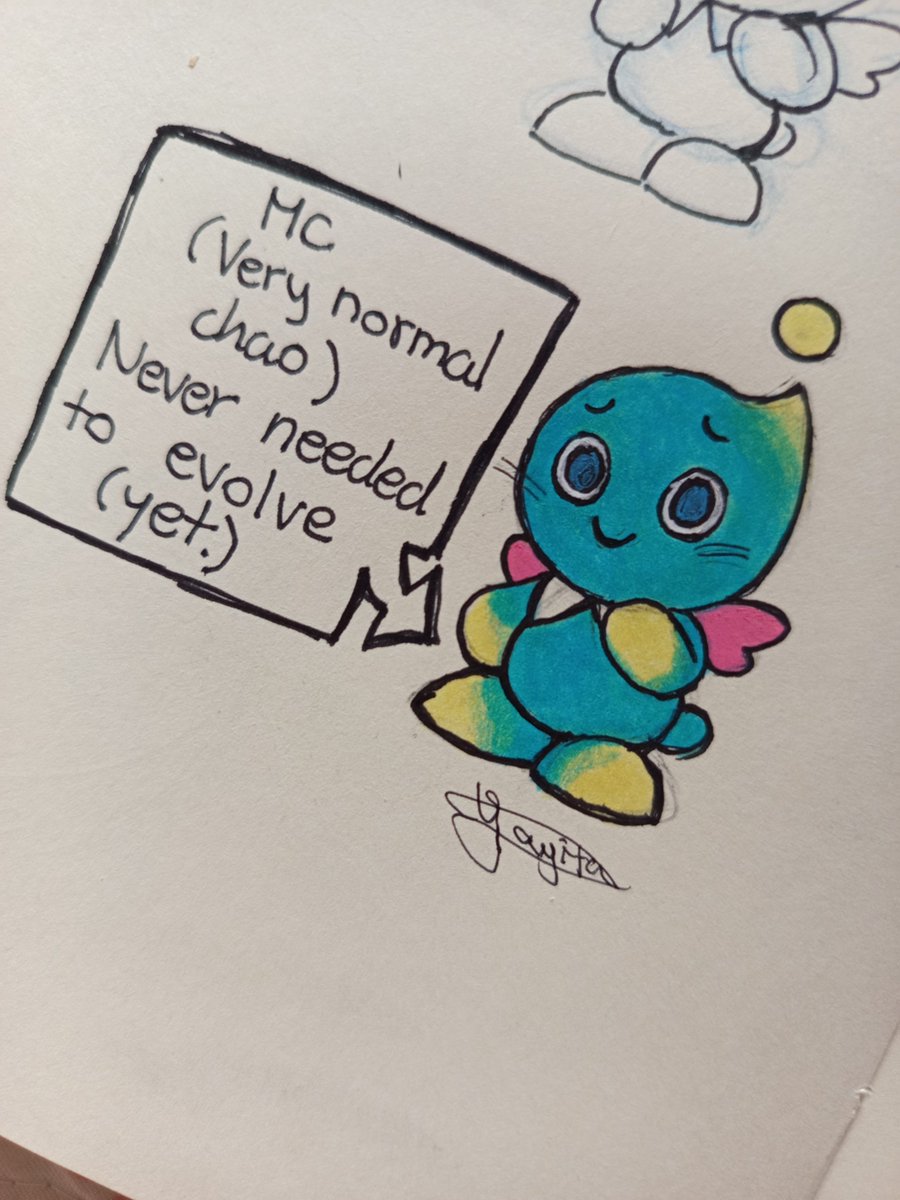 MC
(Very normal
chao)
Never needed
to evolve
(yet.)
Yayita